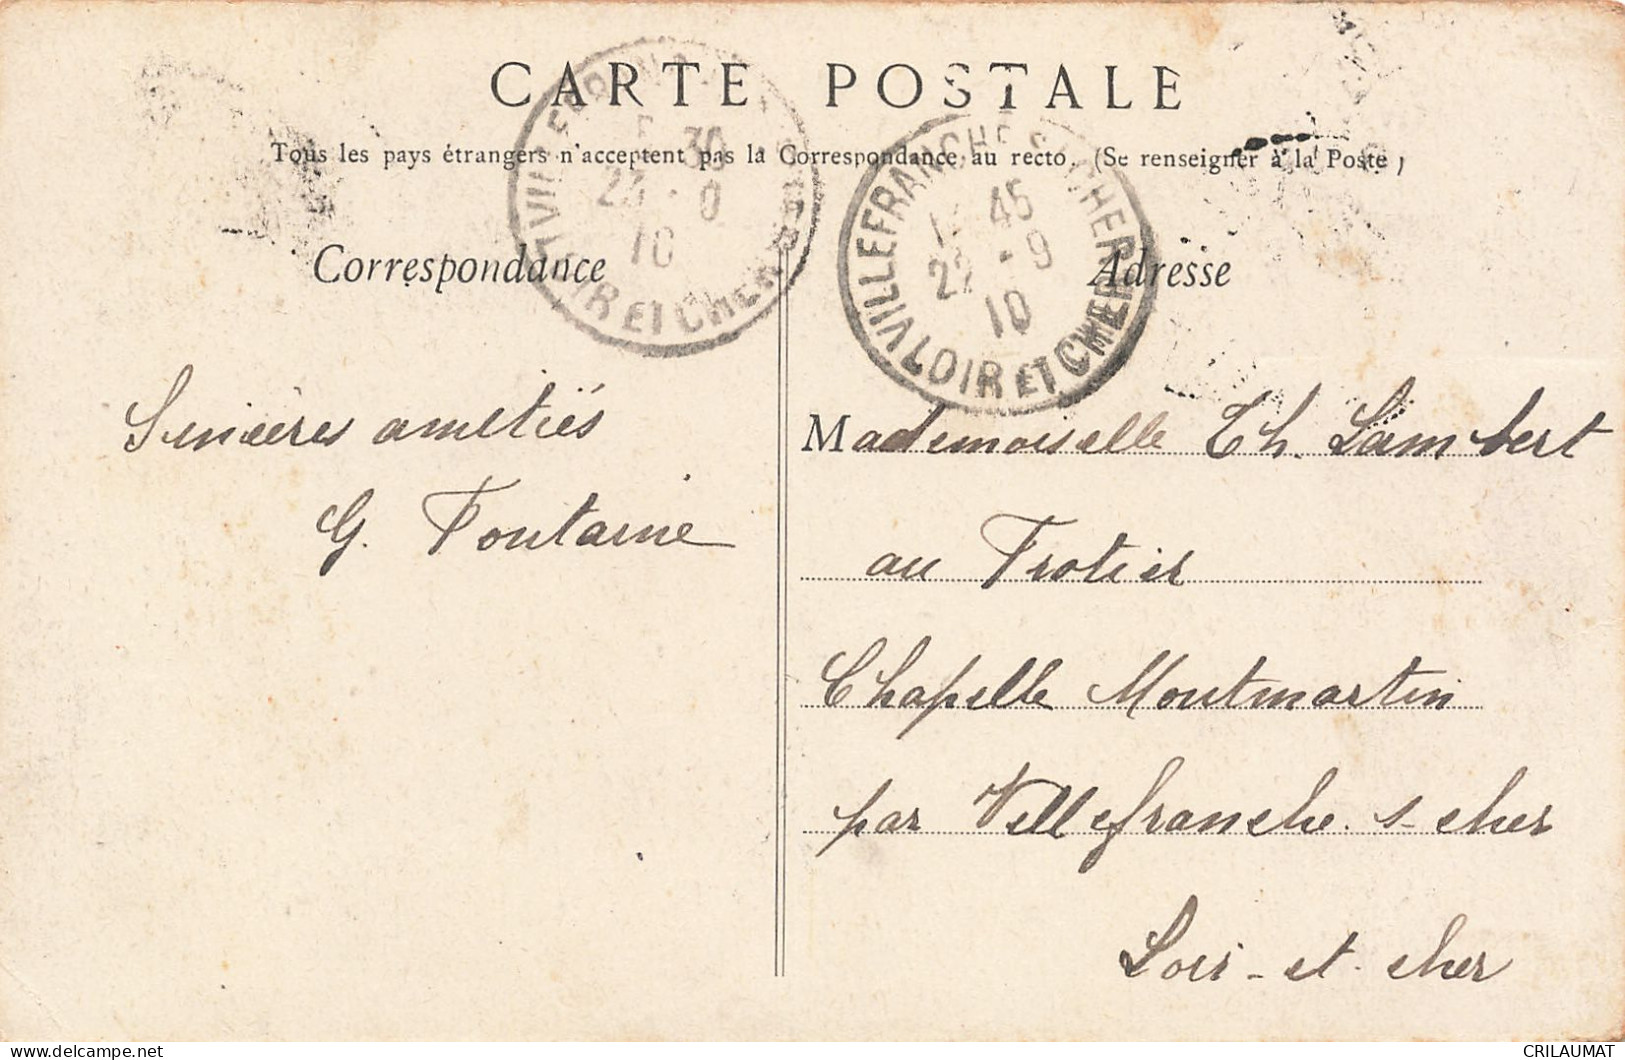 CARTE POSTALE
Tous les pays étrangers n'acceptent pas la Correspondance au recto. (Se renseigner à la Poste)
30
10
LOIR ET CHER
VILLEFRANCHE S CHER
45
22 - 9
10
LOIR ET CHER
Correspondance
Adresse
Sincères amitiés
G. Fontaine
Mademoiselle Th. Lambert
au Frotier
Chapelle Montmartin
par Villefranche s- cher
Loir - et - cher
CRILAUMAT